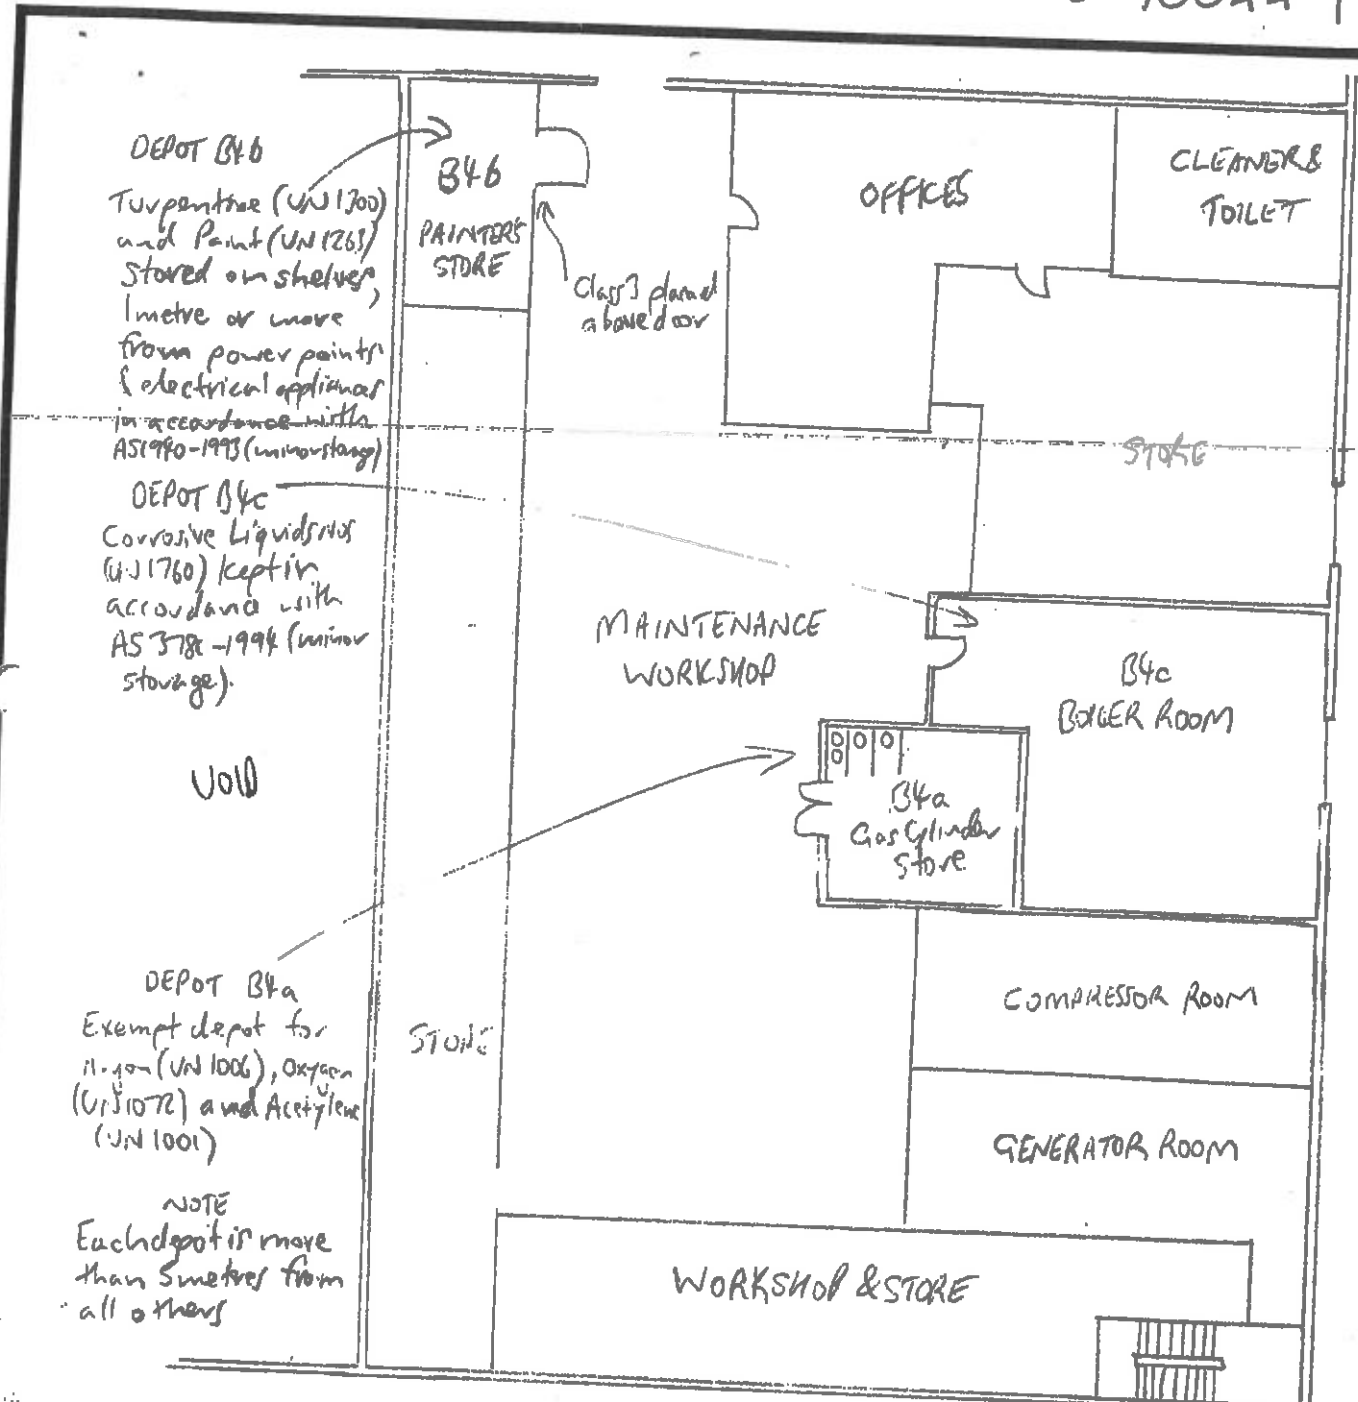 DEPOT B4b
Turpentine (UN 1300)
and Paint (UN 1263)
stored on shelves,
1 metre or more
from power points
& electrical appliances
in accordance with
AS1940-1993 (minor storage)
DEPOT B4c
Corrosive Liquids NOS
(UN 1760) kept in
accordance with
AS 3780-1994 (minor
storage).
VOID
DEPOT B4a
Exempt depot for
Argon (UN 1006), Oxygen
(UN 1072) and Acetylene
(UN 1001)
NOTE
Each depot is more
than 5 metres from
all others
B4b
PAINTER'S
STORE
Class 3 placard
above door
OFFICES
CLEANERS
TOILET
STORE
MAINTENANCE
WORKSHOP
B4c
BOILER ROOM
B4a
Gas Cylinder
Store
STORE
COMPRESSOR ROOM
GENERATOR ROOM
WORKSHOP & STORE